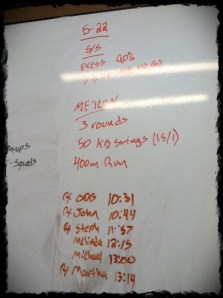 5-22
S/S
PRESS 90%
METCON
3 rounds
50 KB swings (1.5/1)
400m Run
Rx OBB 10:31
Rx John 10:44
Rx Steph 11:57
Melinda 12:15
Michael 13:00
Rx Martha 13:14
-ups
-Squats